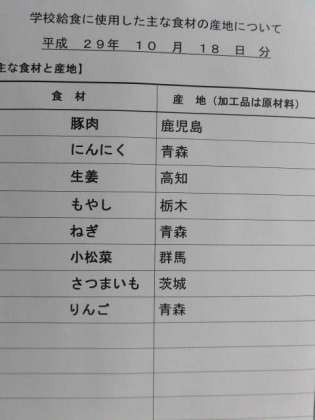 学校給食に使用した主な食材の産地について
平成 29年 10 月 18 日 分
主な食材と産地】
食材 産地（加工品は原材料）
豚肉 鹿児島
にんにく 青森
生姜 高知
もやし 栃木
ねぎ 青森
小松菜 群馬
さつまいも 茨城
りんご 青森